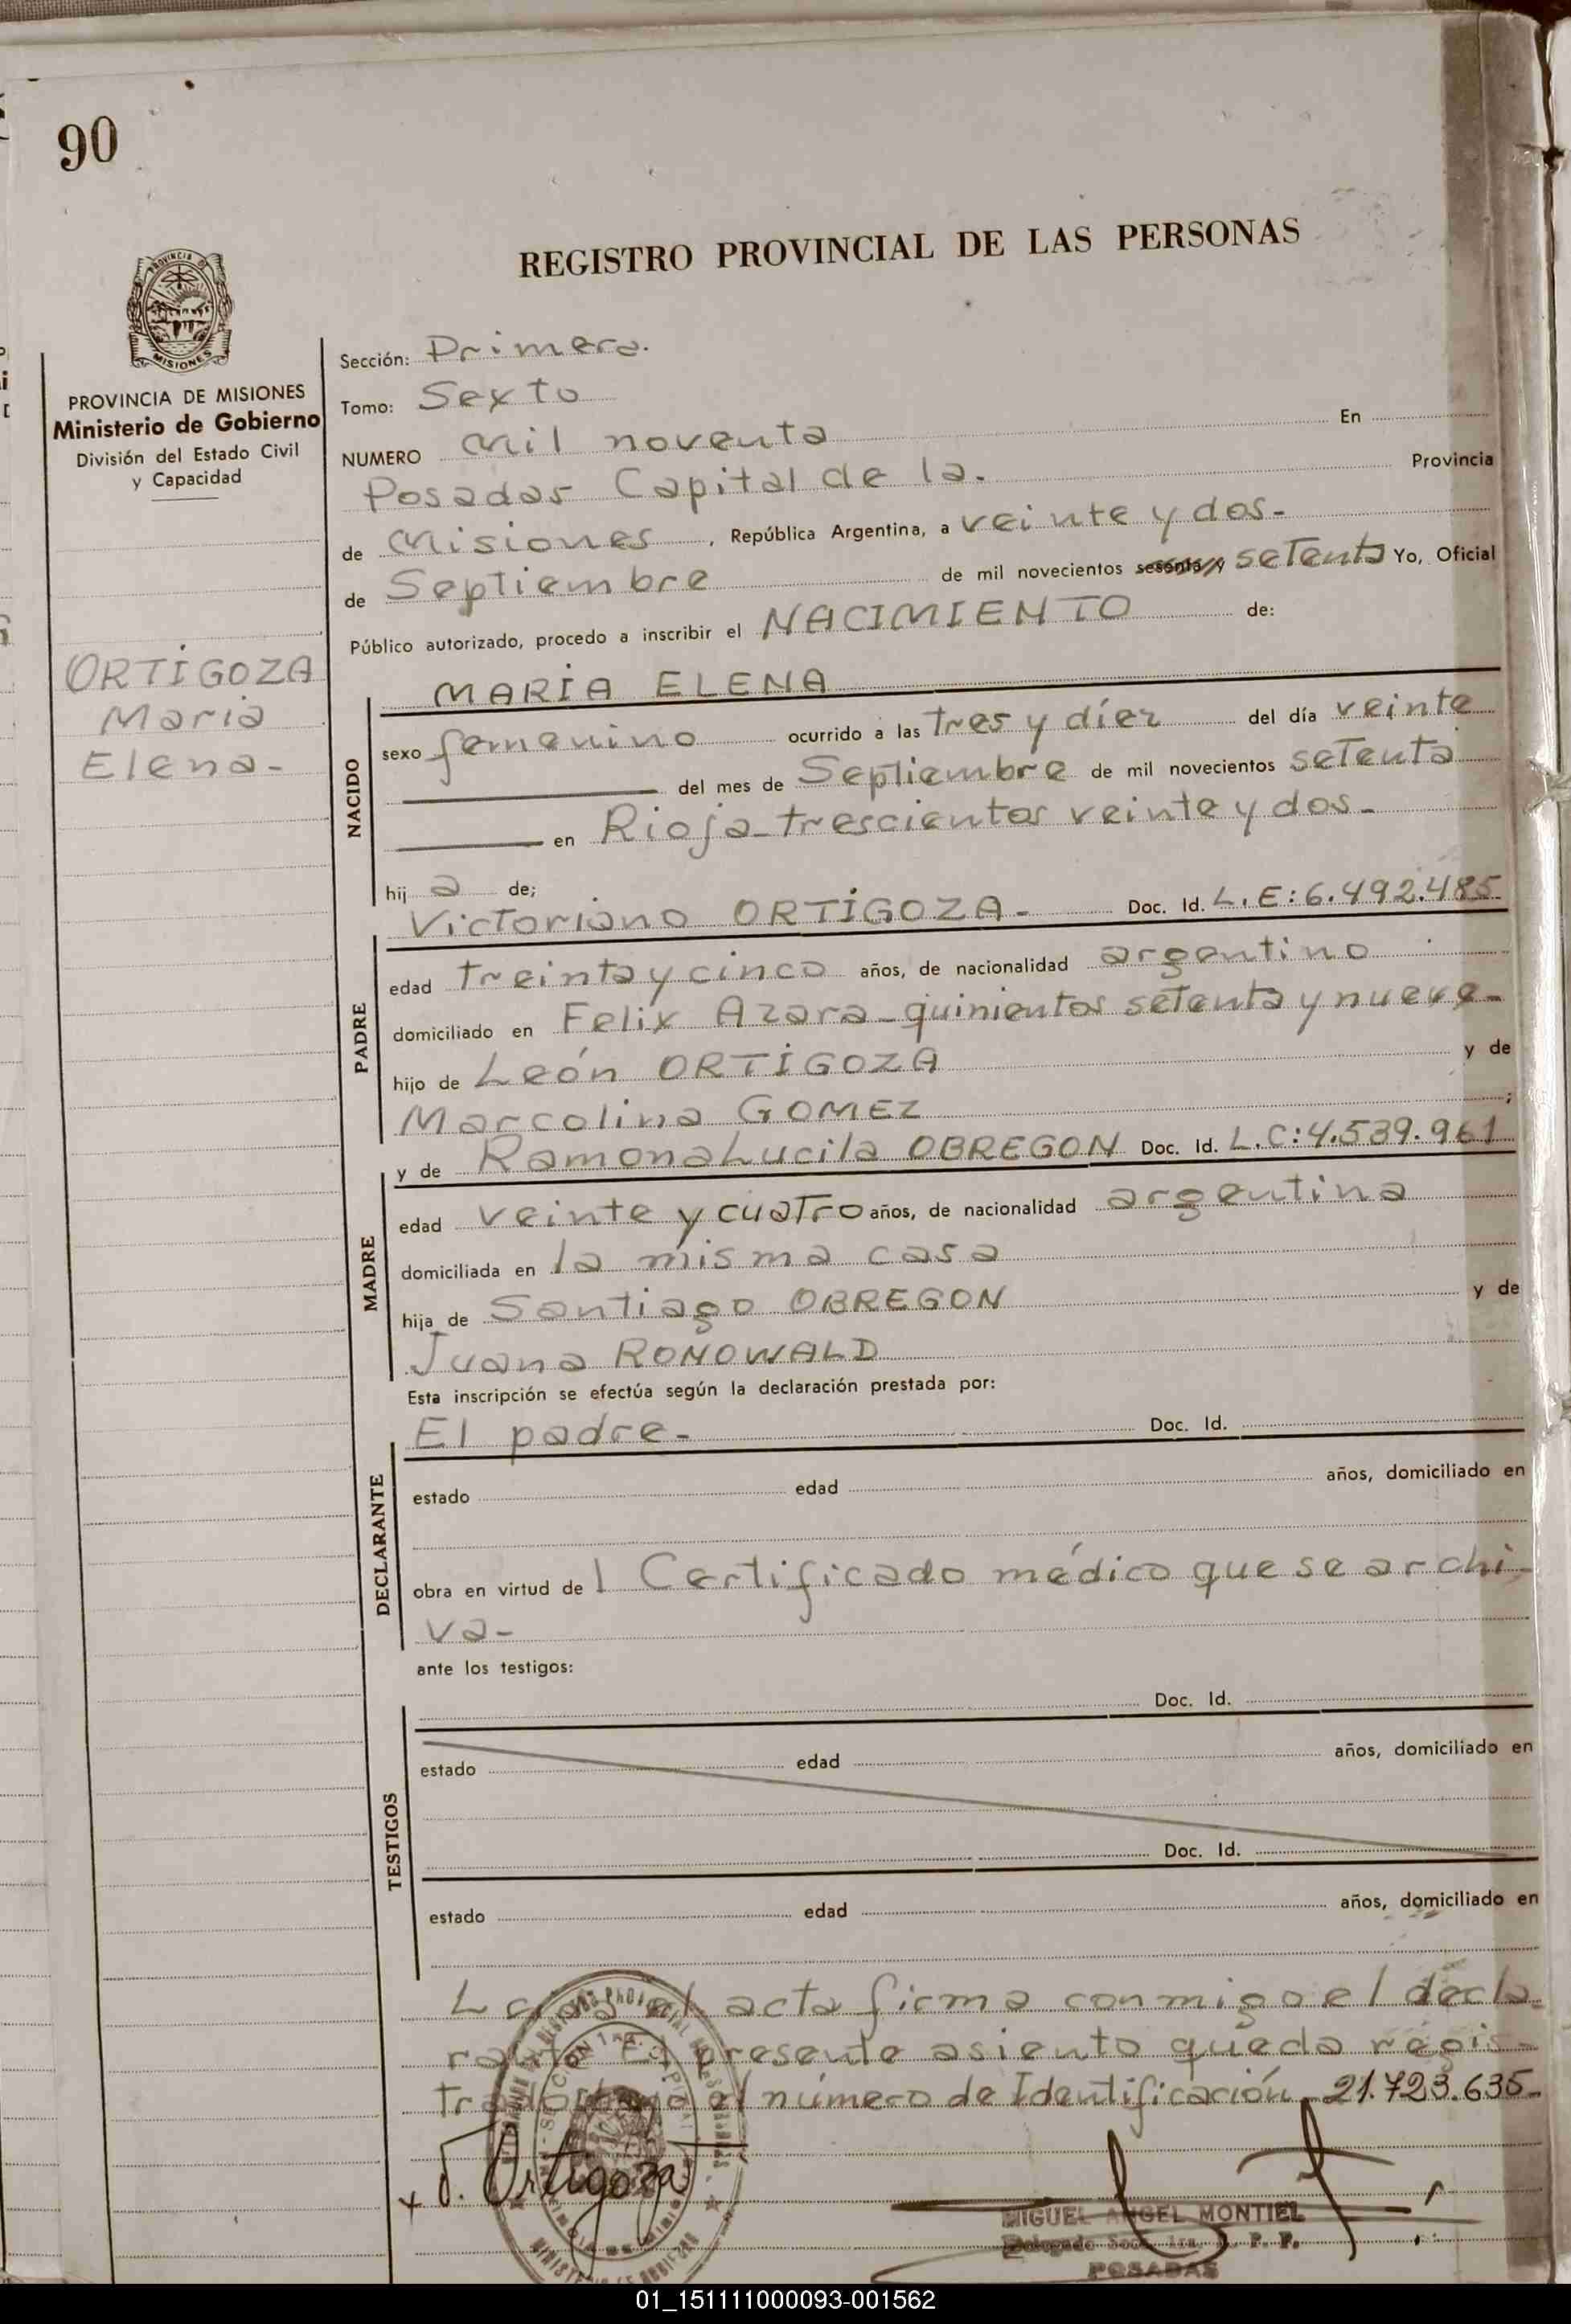 90
REGISTRO PROVINCIAL DE LAS PERSONAS
MISIONES
PROVINCIA DE MISIONES
Ministerio de Gobierno
División del Estado Civil
y Capacidad
ORTIGOZA
Maria
Elena-
Sección: Primera.
Tomo: Sexto
NUMERO Mil noventa En
Posadas Capital de la. Provincia
de Misiones, República Argentina, a veinte y dos-
de Septiembre de mil novecientos sesenta y setenta Yo, Oficial
Público autorizado, procedo a inscribir el NACIMIENTO de:
NACIDO
MARIA ELENA
sexo femenino ocurrido a las tres y díez del día veinte
del mes de Septiembre de mil novecientos setenta
en Rioja-trescientos veinte y dos-
hij a de;
PADRE
Victoriano ORTIGOZA- Doc. Id. L.E:6.492.485
edad treinta y cinco años, de nacionalidad argentino
domiciliado en Felix Azara-quinientos setenta y nueve-
hijo de León ORTIGOZA y de
Marcolina GOMEZ ;
MADRE
y de Ramona Lucila OBREGON Doc. Id. L.C:4.539.961
edad veinte y cuatro años, de nacionalidad argentina
domiciliada en la misma casa
hija de Santiago OBREGON y de
Juana RONOWALD
Esta inscripción se efectúa según la declaración prestada por:
DECLARANTE
El padre- Doc. Id.
estado edad años, domiciliado en
obra en virtud de 1 Certificado médico que se archi-
va-
ante los testigos:
TESTIGOS
Doc. Id.
estado edad años, domiciliado en
Doc. Id.
estado edad años, domiciliado en
Leida el acta firma conmigo el decla-
rante El presente asiento queda regis-
trado bajo el número de Identificación-21.723.635-
x V. Ortigoza
MIGUEL ANGEL MONTIEL
Delegado Secc. 1ra. R. P. P.
POSADAS
01_151111000093-001562